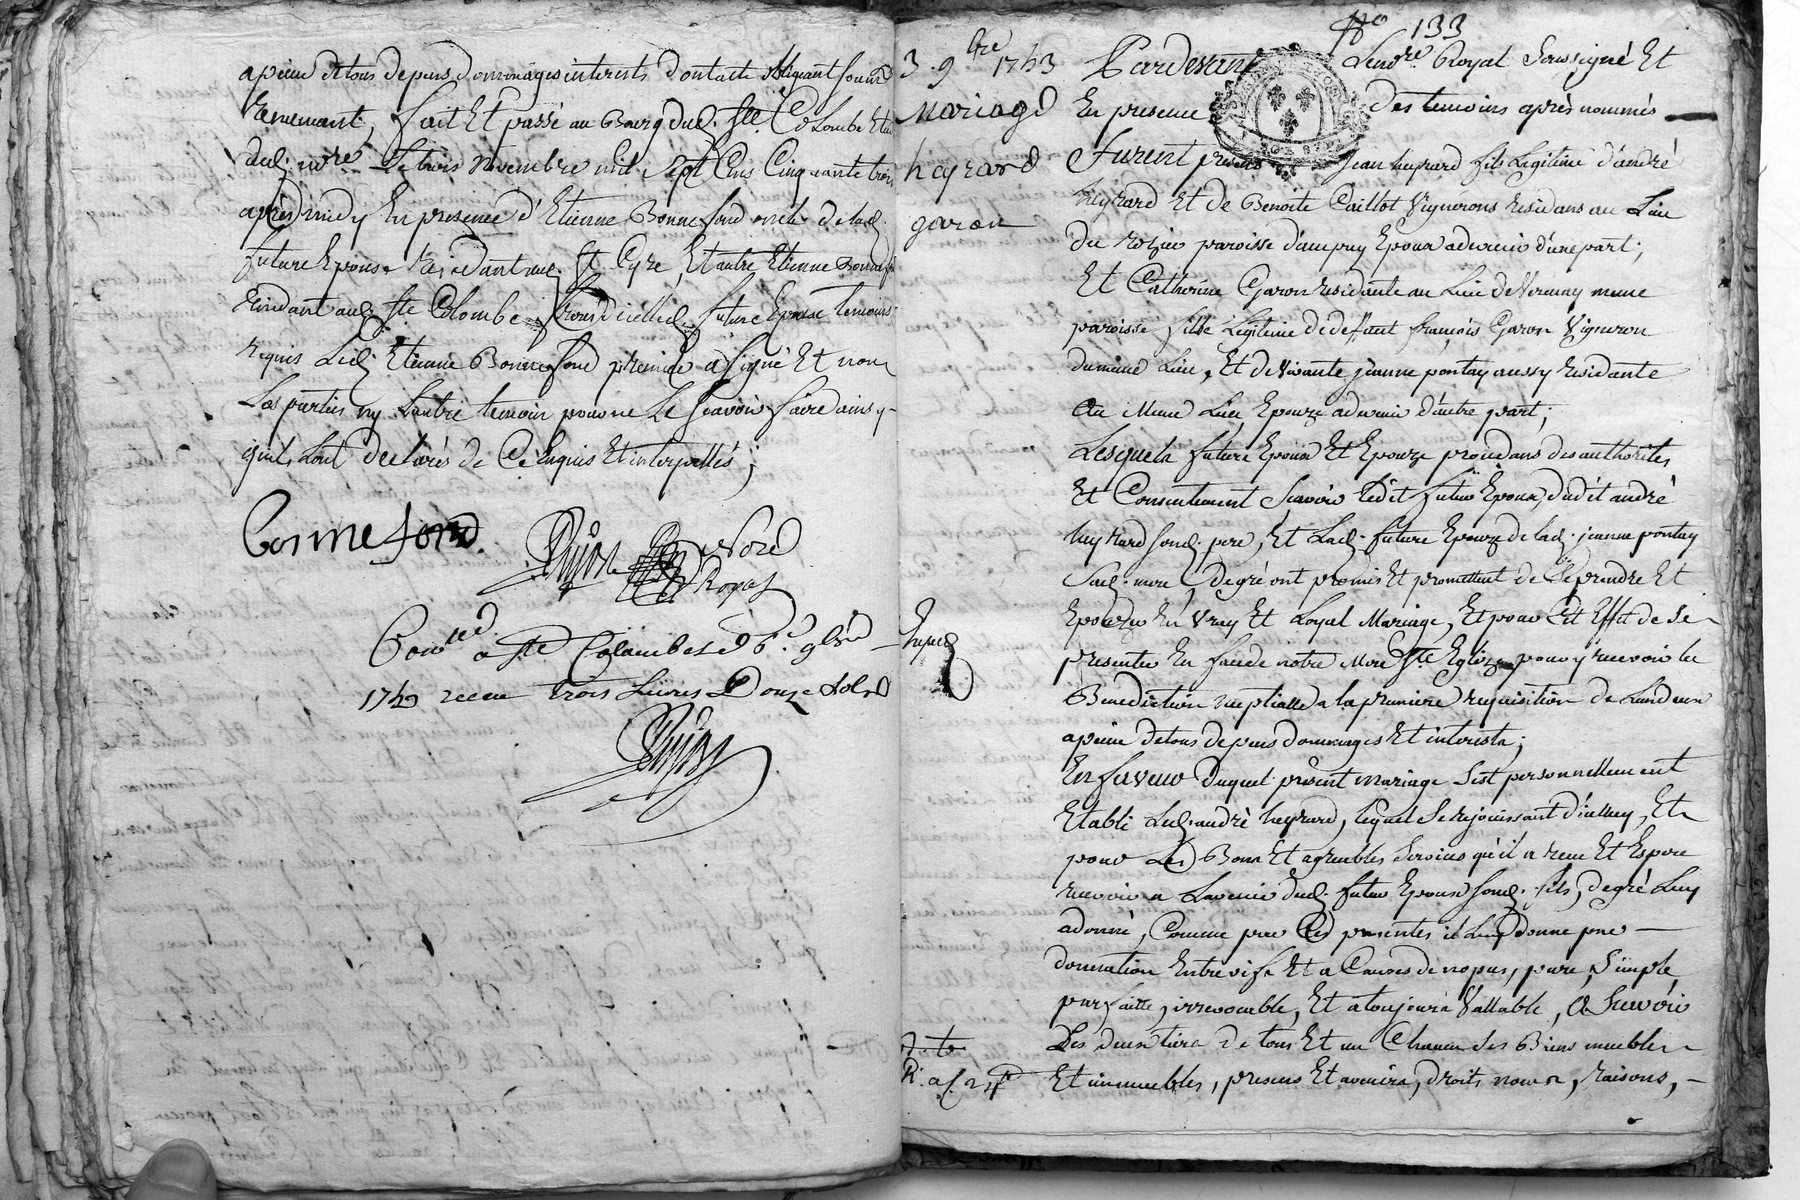 apeine de tous depens dommages interests dont acte obligeant soumet
renoncant, fait Et passé au Bourg dud. Ste Colombe Etude
dud. nore. Le trois Novembre mil Sept Cens Cinquante trois
après midy En presence d'Etienne Bonnefond oncle de lad.
future Epouse Residant aud. St Cyre, Et autre Etienne Bonnefond
Residant aud. Ste Colombe future Epouse temoins
requis Led. Etienne Bonnefond premier a signé Et non
Les parties ny L'autre temoin pour ne Le scavoir faire ainsy
quils L'ont declarés de Ce Enquis Et interpellés ;
Bonnefond.
nore
Royal
Conlled a Ste Colombe Le 6e. 9bre
1753 receu trois Livres Douze sols
3. 9bre 1753
Mariage
heyrard
garon
No 133
Pardevant Le nore. Royal Soussigné Et
En presence des temoins après nommés
Furent presens Jean heyrard fils Legitime d'andré
heyrard Et de Benoite Caillot Vignerons residans au Lieu
du rozier paroisse d'ampuy Epoux advenir d'une part ;
Et Catherine Garon residante au Lieu de Verenay meme
paroisse, fille Legitime de deffunt françois Garon Vigneron
dumeme Lieu, Et de Vivante jeanne pontay aussy residante
au Meme Lieu Epouze advenir d'autre part ;
Lesquels future Epoux Et Epouze procedans des authorites
Et Consentement Scavoir Ledit futur Epoux, dudit andré
heyrard sond. pere, Et Lad. future Epouze de lad. jeanne pontay
Sad. mere, de gré ont promis Et promettent de Se prendre Et
Epouzer En Vray Et Loyal Mariage, Et pour Cet Effet de se
presenter En face de notre Mere Ste Eglize pour y recevoir la
Benediction nuptialle a la premiere requisition de Lundeux
apeine de tous depens dommages Et interests ;
En faveur Duquel present mariage s'est personnellement
Etabli Led. andré heyrard, lequel Se rejouissant d'icelluy, Et
pour Les Bons Et agreables Services qu'il a receu Et Espere
recevoir a L'avenir dud. futur Epoux sond. fils, de gré Luy
a donné, Comme par Ces presentes il Luy donne par
donnation Entre vifs Et a Causes de nopces, pure, Simple,
parfaitte, irrevocable, Et a toujours Vallable, A Scavoir
Les deux tiers de tous Et un Chacun Ses Biens meubles
Et immeubles, presens Et avenirs, droits noms, raisons,